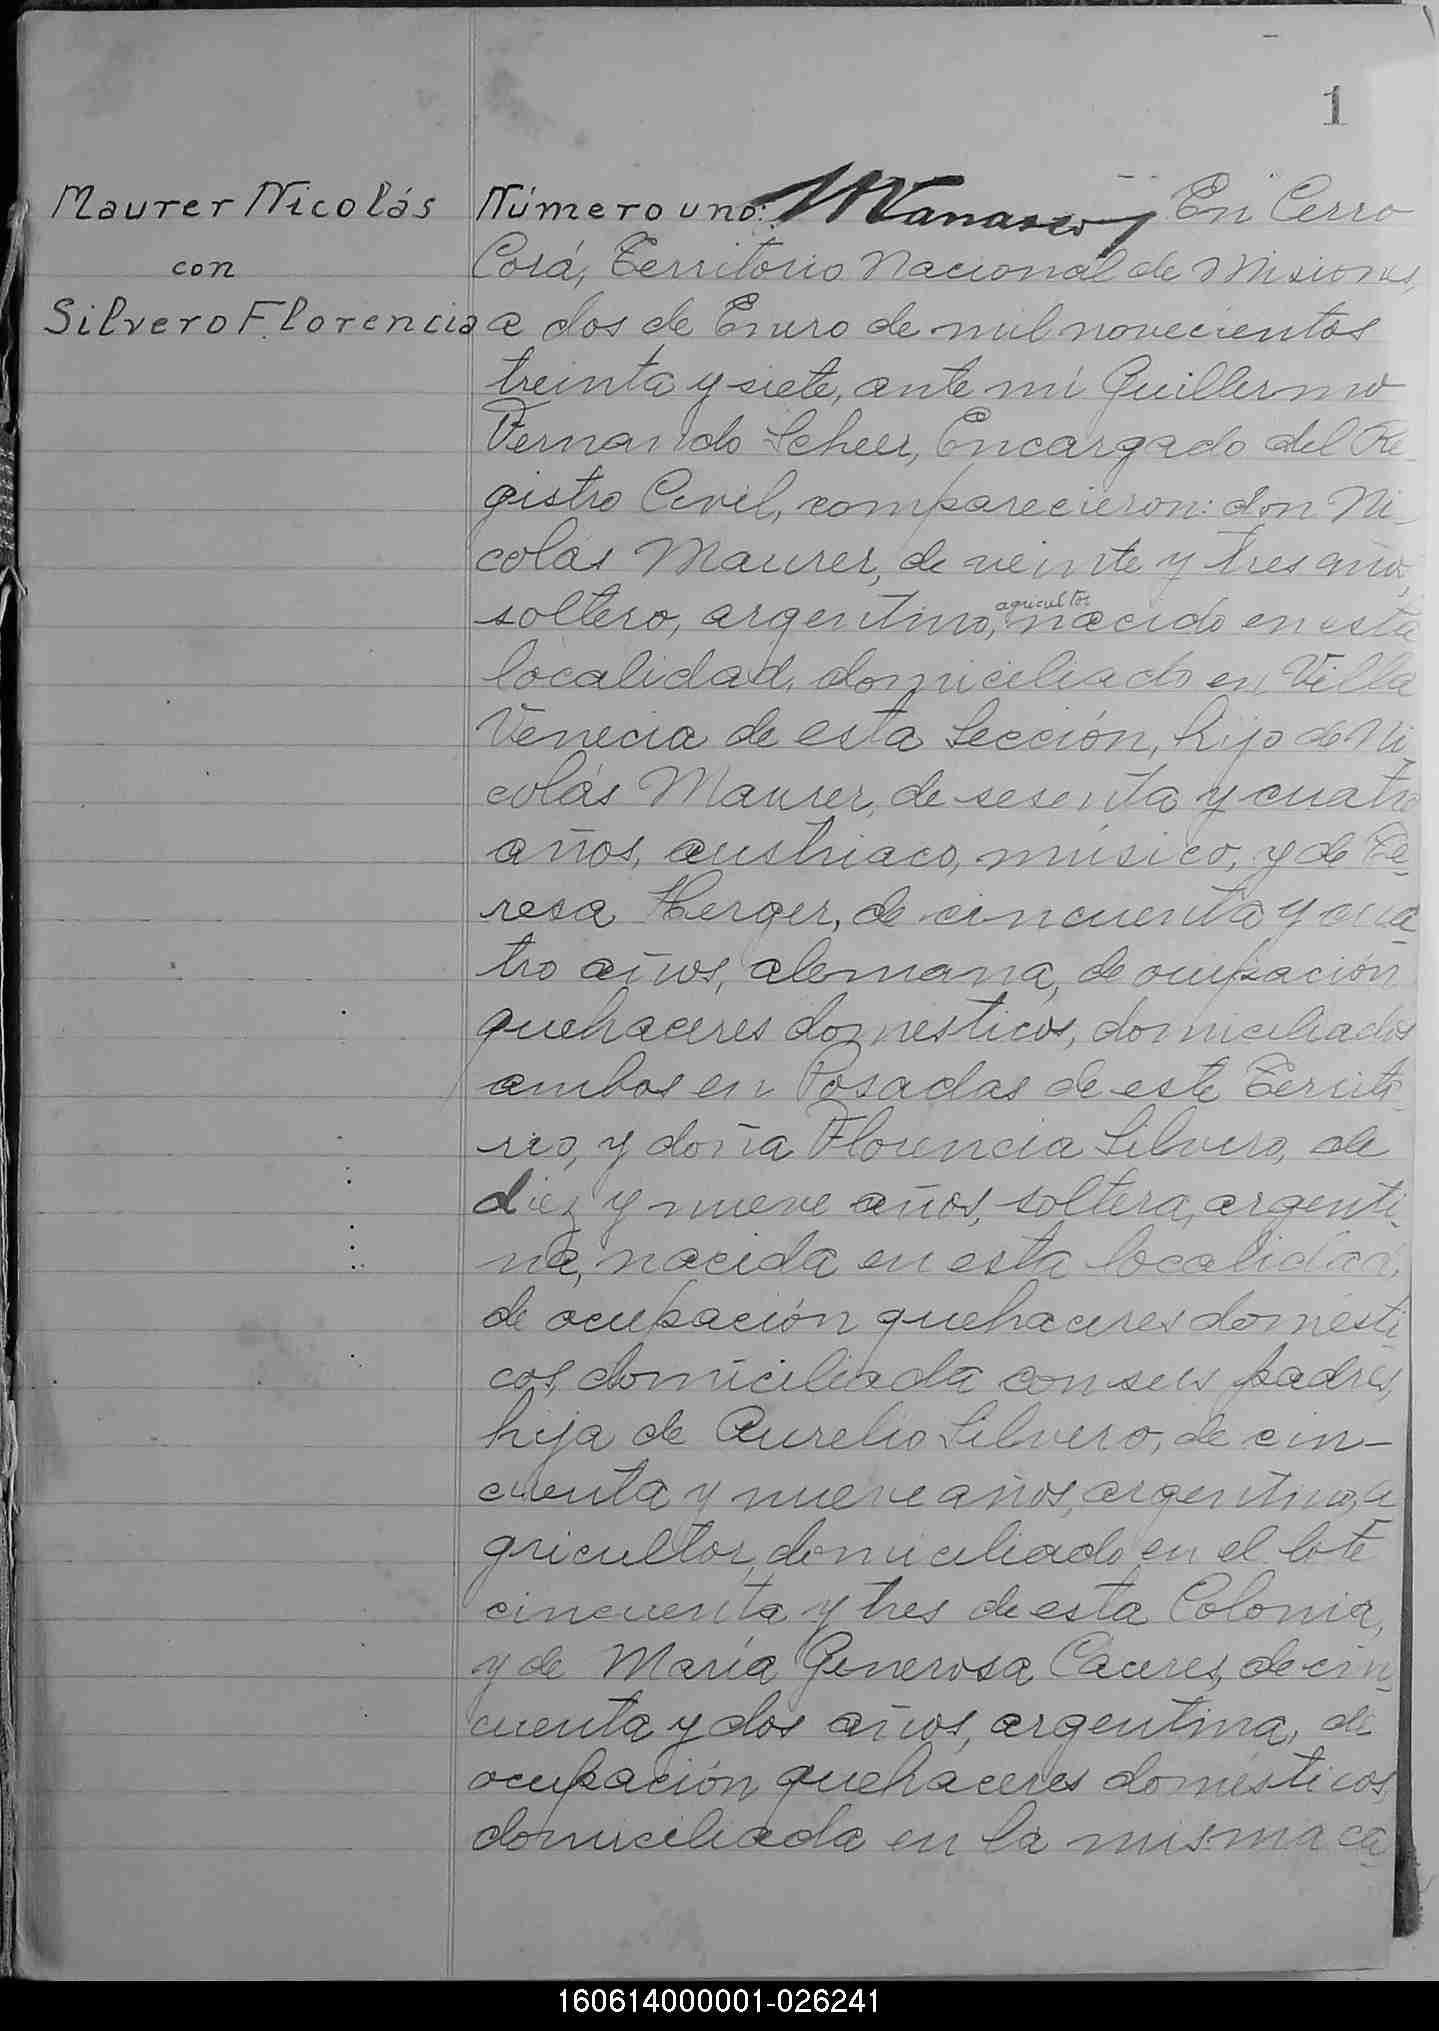 1
Maurer Nicolás
con
Silvero Florencia
Número uno: En Cerro
Corá, Territorio Nacional de Misiones,
a dos de Enero de mil novecientos
treinta y siete, ante mí Guillermo
Fernando Scheer, Encargado del Re-
gistro Civil, comparecieron: don Ni-
colás Maurer, de veinte y tres años,
agricultor
soltero, argentino, nacido en esta
localidad, domiciliado en Villa
Venecia de esta Sección, hijo de Ni
colás Maurer, de sesenta y cuatro
años, austriaco, músico, y de Te-
resa Herger, de cincuenta y cua-
tro años, alemana, de ocupación
quehaceres domesticos, domiciliados
ambos en Posadas de este Territo-
rio, y doña Florencia Silvero, de
diez y nueve años, soltera, argenti-
na, nacida en esta localidad,
de ocupación quehaceres domésti
cos, domiciliada con sus padres,
hija de Aurelio Silvero, de cin-
cuenta y nueve años, argentino, a
gricultor, domiciliado en el lote
cincuenta y tres de esta Colonia,
y de María Generosa Cáceres, de cin-
cuenta y dos años, argentina, de
ocupación quehaceres domésticos,
domiciliada en la misma ca-
160614000001-026241